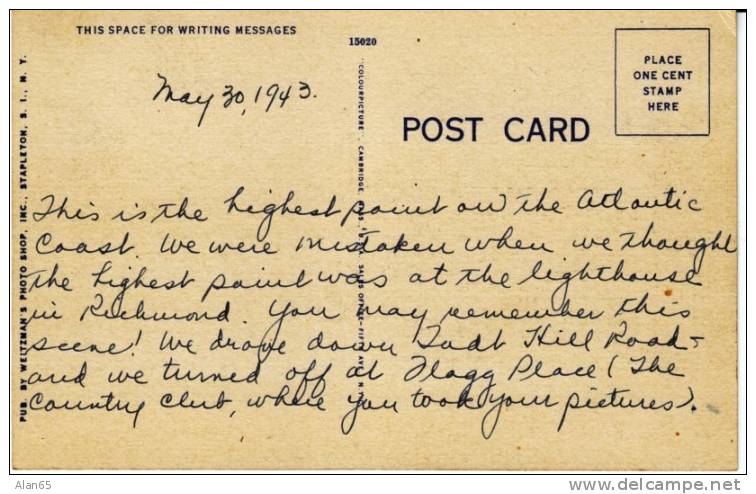 THIS SPACE FOR WRITING MESSAGES
15020
PLACE
ONE CENT
STAMP
HERE
May 30, 1943.
POST CARD
This is the highest point on the Atlantic
Coast. We were mistaken when we thought
the highest point was at the lighthouse
in Richmond. You may remember this
scene! We drove down Todt Hill Road-
and we turned off at Flagg Place (The
Country Club, where you took your pictures).
PUB. BY WELTZMAN'S PHOTO SHOP, INC., STAPLETON, S. I., N. Y.
"COLOURPICTURE" CAMBRIDGE, SALES OFFICE-FIFTH AVE
Alan65
www.delcampe.net